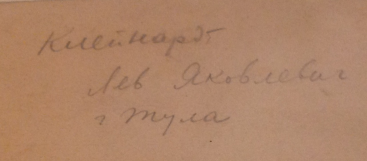 Клейнардт
Лев Яковлевич
г Тула